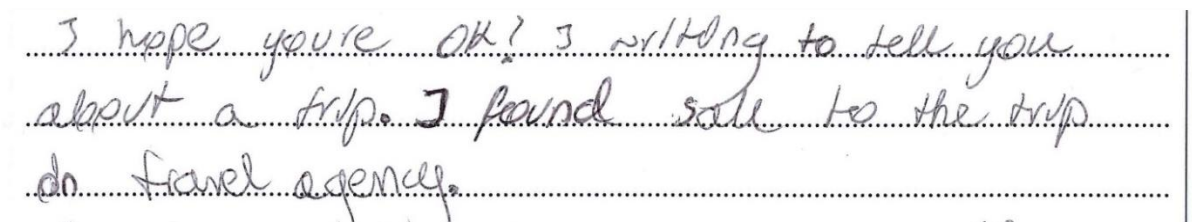 I hope youre OK? I writing to tell you
about a trip. I found sale to the trip
do travel agency.